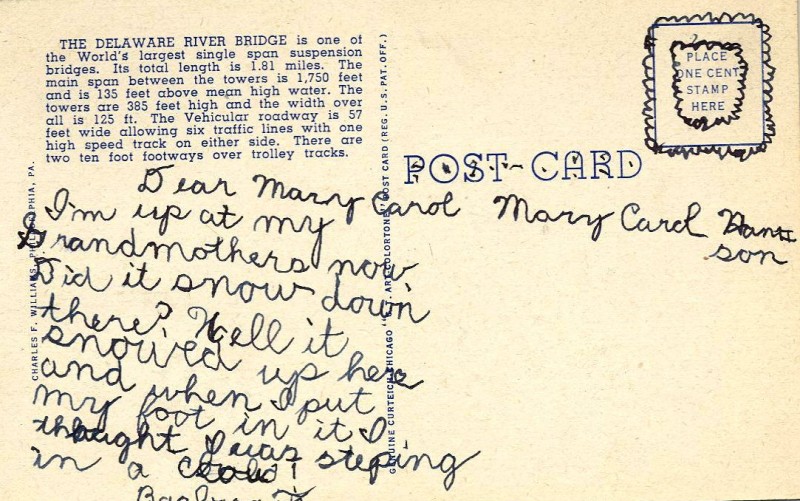 THE DELAWARE RIVER BRIDGE is one of
the World's largest single span suspension
bridges. Its total length is 1.81 miles. The
main span between the towers is 1,750 feet
and is 135 feet above mean high water. The
towers are 385 feet high and the width over
all is 125 ft. The Vehicular roadway is 57
feet wide allowing six traffic lines with one
high speed track on either side. There are
two ten foot footways over trolley tracks.
CHARLES F. WILLIAMS, PHILADELPHIA, PA.
GENUINE CURTEICH-CHICAGO "C.T. ART-COLORTONE" POST CARD (REG. U.S. PAT. OFF.)
PLACE
ONE CENT
STAMP
HERE
POST-CARD
Dear Mary Carol
I'm up at my
Grandmothers now
Did it snow down
there? Well it
snowed up here
and when I put
my foot in it I
thought I was steping
in a cloud!
Mary Carol
son